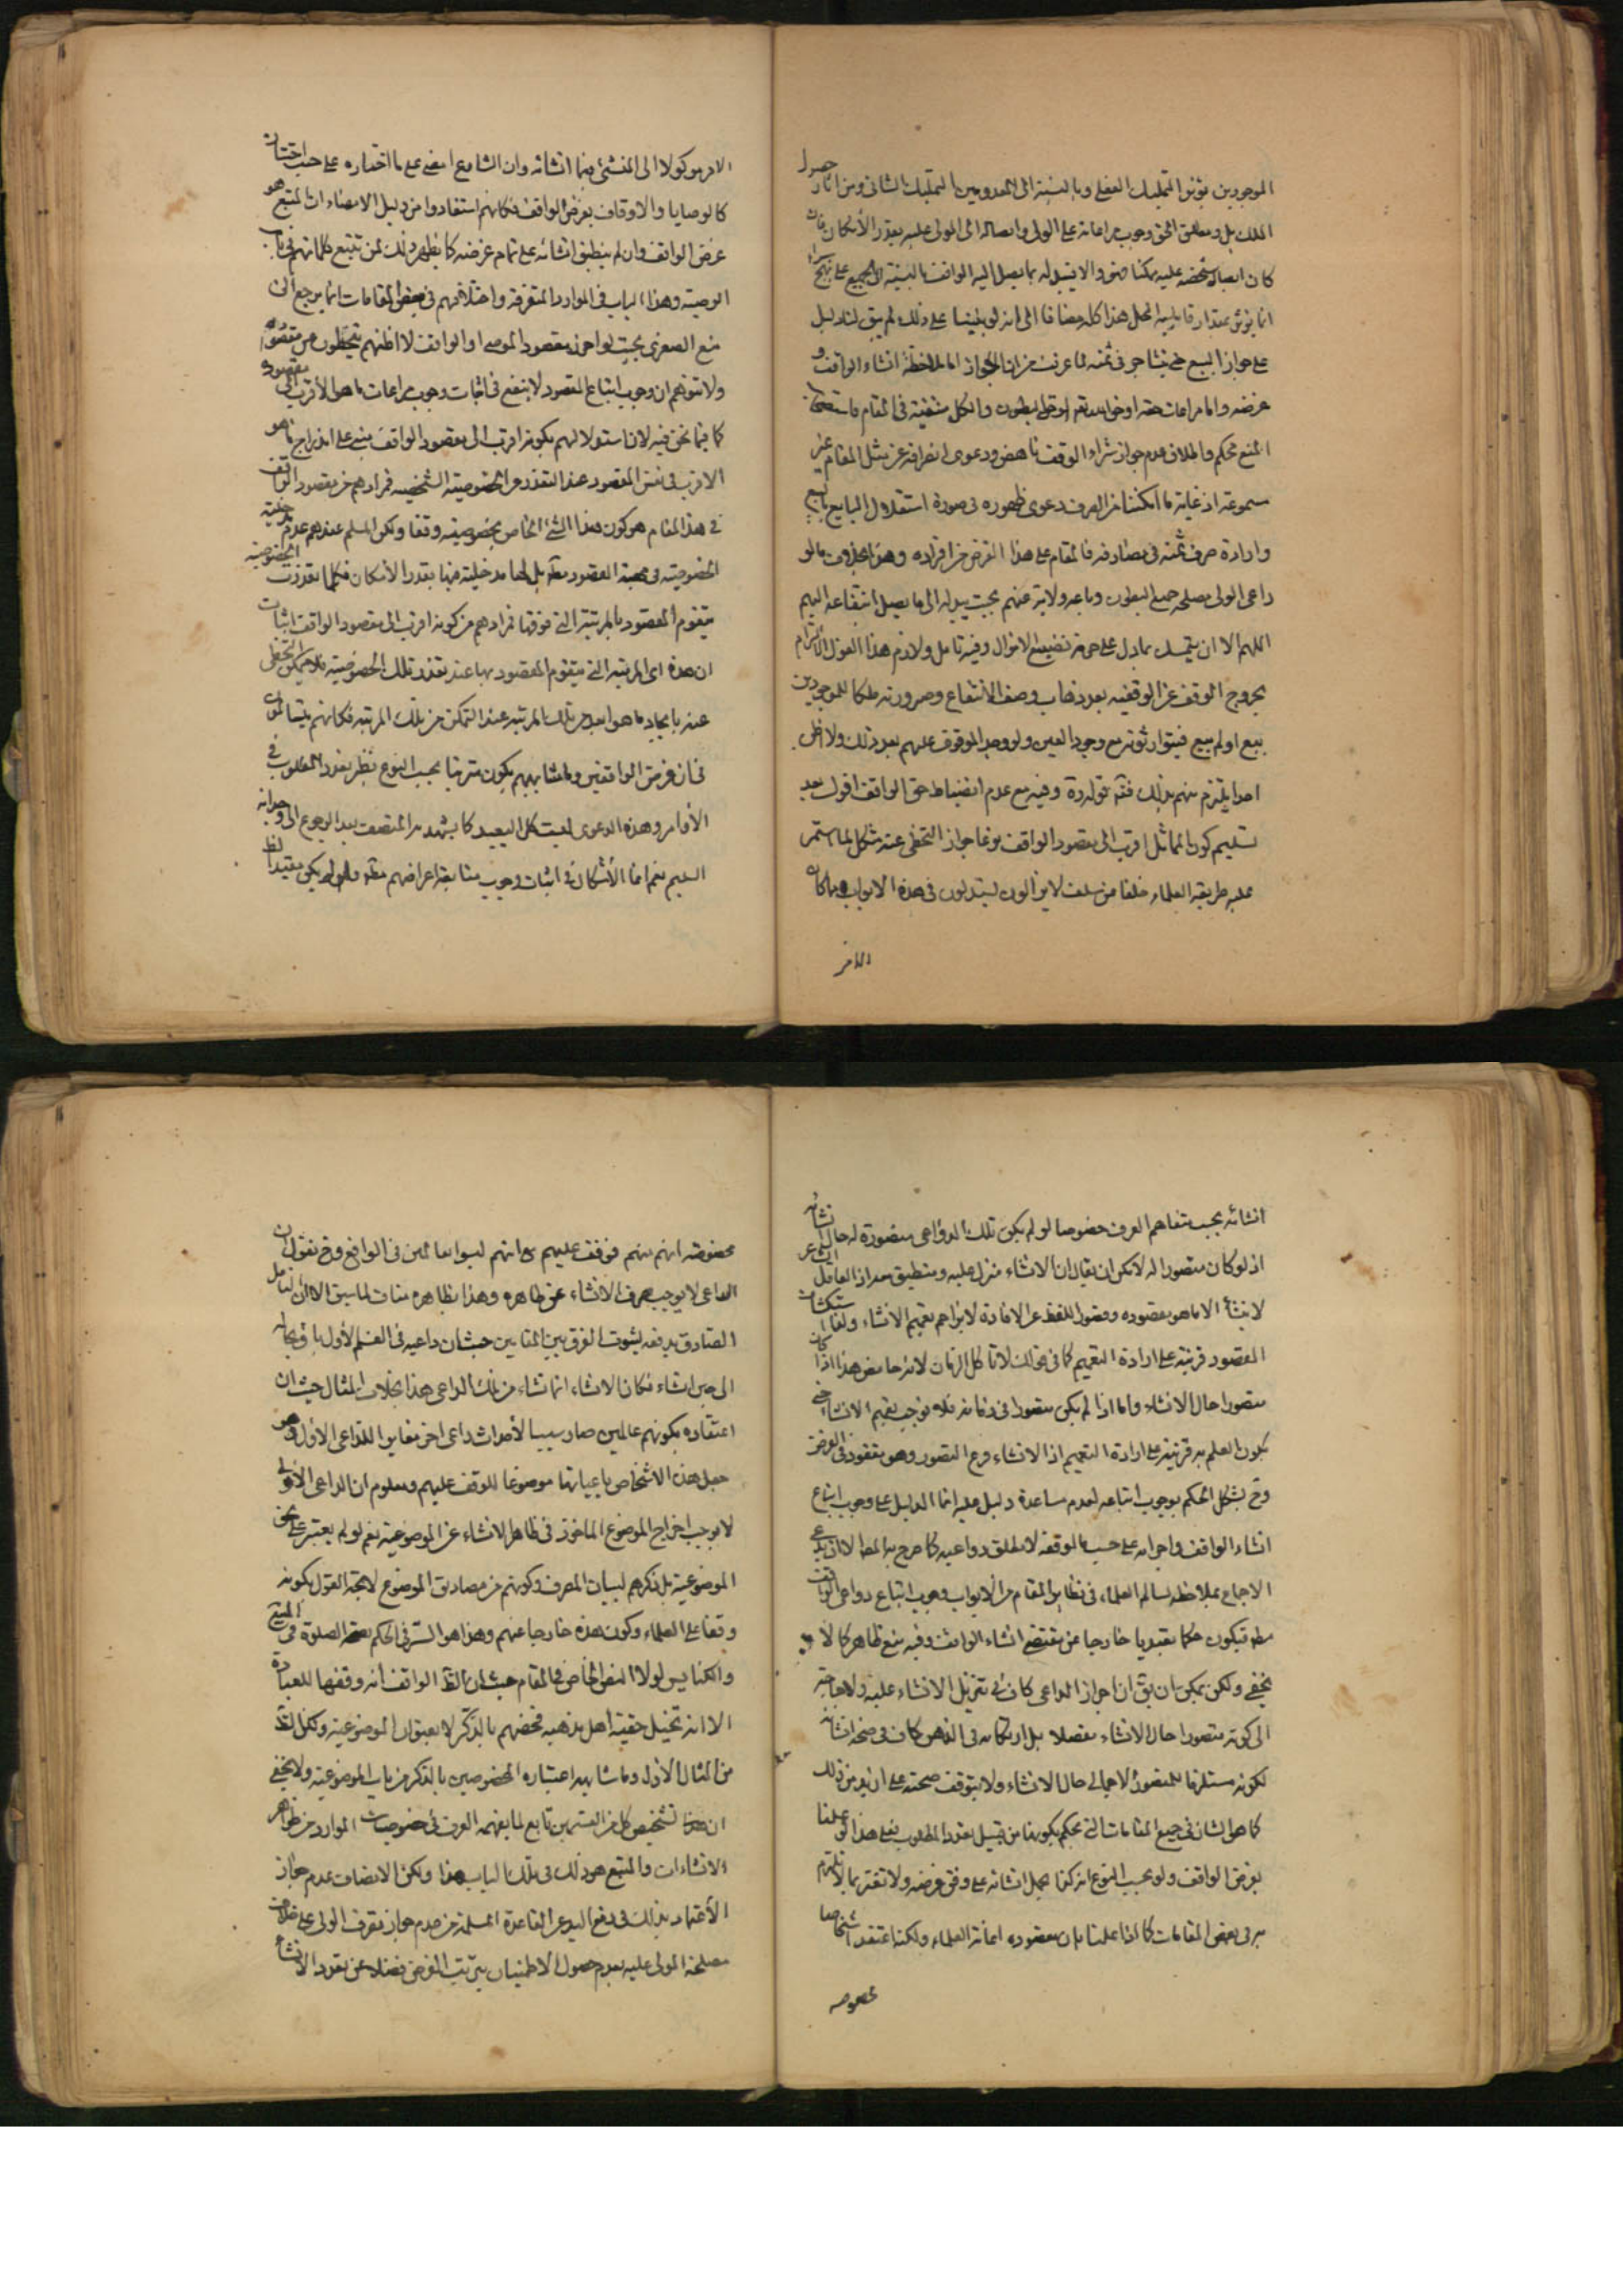 الموجودين يؤثر التمليك الفعلي وبالنسبة الى المعدومين التمليك الشاني ومن اثار حصول
الملك بل ومطلق الحق وجوب مراعاته على الولي وايصاله الى المولى عليه بقدر الأمكان فان
كان ايصال شخصه عليه ممكنا فهو والا يتبدل بما يصل اليه الوقف بالنسبة الى الجميع على نهج سواء
انما يؤثر بمقدار قابلية المحل هذا كله مضافا الى انه لو بنينا على ذلك لم يبق لنا دليل
على جواز البيع حتى يتشاجر في ثمنه لما عرفت من ان الجواز اما لملاحظة انشاء الواقف و
غرضه واما مراعات حقه او حق الله او حق البطون والكل منتفية في المقام فاستصحاب
المنع محكم واطلاق عدم جواز شراء الوقف ناهض ودعوى انصرافه عن مثل المقام غير
مسموعة اذ غاية ما امكننا من الصرف دعوى ظهوره في صورة استقلال البايع بالبيع
وارادة صرف ثمنه في مصارفه فالمقام على هذا الفرض من افراده وهذا بخلاف ما لو
راعى الولي مصلحة جميع البطون وما عه ولاية عنهم بحيث يبدله الى ما يصل انتفاعه اليهم
اللهم الا ان يتمسك بما دل على حرمة تضييع الاموال وفيه تأمل ولازم هذا القول الالتزام
بخروج الوقف عن الوقفية بعد ذهاب وصف الأنتفاع وصيرورته ملكا للموجودين
بيع او لم يبع فيتوارثونه مع وجود العين ولو وجد الموقوف عليهم بعد ذلك ولا اظن
احدا يلتزم منهم بذلك فتم قوله ره وفيه مع عدم انضباط حق الواقف اقول بعد
تسليم كون المماثل اقرب الى مقصود الواقف نوعا جواز التخطي عنه مشكل لما استمر
عليه طريقة العلماء خلفا عن سلف لايزالون يستدلون في هذه الابواب بما كان
الامر
الامر موكولا الى المنشئ فيما انشائه وان الشارع امضى على ما اختاره على حسب اختياره
كالوصايا والاوقاف بغرض الواقف فكانهم استفادوا من دليل الامضاء ان المتبع هو
غرض الواقف وان لم ينطبق انشائه على تمام غرضه كما يظهر ذلك لمن تتبع كلماتهم في باب
الوصية وهذا الباب في الموارد المتفرقة واختلافهم في بعض المقامات انما يرجع الى
منع الصغرى بحيث لو احرز مقصود الموصي او الواقف لا اظنهم يتخطون عن مقصوده
ولا تتوهم ان وجوب اتباع المقصود لا ينفع في اثبات وجوب مراعات ما هو الأقرب الى مقصوده
كما فيما نحن فيه لان استدلالهم بكونه اقرب الى مقصود الواقف مبني على اندراج ما هو
الاقرب في نفس المقصود عند التعذر عن الخصوصية الشخصية فمرادهم من مقصود الواقف
في هذا المقام هو كون هذا الشئ الخاص بخصوصيته وقفا ولكن المسلم عندهم عدم دخلية
الخصوصية في صحة المقصود مطلقا بل لها مدخلية فيها بقدر الأمكان فكلما تعذرت الخصوصية
يتقوم المقصود بالمرتبة التي فوقها فمرادهم من كونه اقرب الى مقصود الواقف اثبات
ان هذه اي المرتبة التي يتقوم المقصود بها عند تعذر تلك الخصوصية فلا يمكن التخطي
عنه بايجاد ما هو ابعد من تلك المرتبة عند التمكن من تلك المرتبة فكانهم يدعون
في ان غرض الواقفين وما شابههم يكون مترتبا بحسب النوع نظير تعدد المطلوب في
الأوامر وهذه الدعوى ليست كل البعيد كما يشهد به المنصف بعد الرجوع الى وجدانه
السليم نعم انما الأشكال في اثبات وجوب متابعة اغراضهم مطلقا ولو لم يكن مقيدا لظ
انشائه بحسب متفاهم العرف خصوصا لو لم يكن تلك الدواعي متصورة له حال انشائه
اذ لو كان متصورا له لامكن ان يقال ان الانشاء منزل عليه ومنطبق معه اذ العاقل الشاعر
لا ينشأ الا ما هو مقصوده وقصور اللفظ عن الافادة لا يزاحم تعميم الانشاء ولعل استكشاف
المقصود قرينة على ارادة التعميم كما في قولك لا تأكل الرمان لانه حامض هذا اذا كان
متصورا حال الانشاء واما اذا لم يكن متصورا في زمانه فلا يوجب تعميم الانشاء حتى
يكون العلم به قرينة على ارادة التعميم اذ الانشاء فرع التصور وهو مفقود في الفرض
وح يشكل الحكم بوجوب اتباعه لعدم مساعدة دليل عليه انما الدليل على وجوب اتباع
انشاء الواقف واجرائه على حسب ما اوقفه لا مطلق دواعيه كما صرح به المص الا ان يدعى
الاجماع بملاحظة تسالم العلماء في نظاير المقام من الابواب وجوب اتباع دواعي الواقف
مطلقا فيكون حكما تعبديا خارجا عن مقتضى انشاء الواقف وفيه منع ظاهر كما لا
يخفى ولكن يمكن ان يق ان احراز الداعي كاف في تنزيل الانشاء عليه ولا حاجة
الى كونه متصورا حال الانشاء مفصلا بل ارتكازه في الذهن كاف في صحة انشائه
لكونه مستلزما للتصور الاجمالي حال الانشاء ولا يتوقف صحته على ازيد من ذلك
كما هو الشان في جميع المقامات التي نحكم بكونها من قبيل تعدد المطلوب فعلى هذا لو علمنا
بغرض الواقف ولو بحسب النوع امكننا حمل انشائه على وفق غرضه ولا تغتر بما لا يلتزم
به في بعض المقامات كما اذا علمنا بان مقصوده اعانة العلماء ولكنه اعتقد اشخاصا
مخصوصه
مخصوصة انهم منهم فوقف عليهم مع انهم ليسوا عالمين في الواقع وح نقول ان
الداعي لا يوجب صرف الانشاء عن ظاهره وهذا بظاهره مناف لما سبق الا ان التأمل
الصادق يدفعه بثبوت الفرق بين المقامين حيث ان داعيه في القسم الأول باق بحاله
الى حين انشاء فكان الانشاء انما نشاء من تلك الداعي هذا بخلاف المثال حيث ان
اعتقاده بكونهم عالمين صار سببا لأحداث داعي اخر مغاير للداعي الاول وهو
جعل هذه الاشخاص باعيانها موضوعا للوقف عليهم ومعلوم ان الداعي الأولى
لا يوجب اخراج الموضوع الماخوذ في ظاهر الانشاء عن الموضوعية نعم لو لم يعتبر على نحو
الموضوعية بل ذكرهم لبيان المصرف وكونهم من مصاديق الموضوع لاتجه القول بكونه
وقفا على العلماء وكون هذه خارجا عنهم وهذا هو السر في الحكم بصحة الصلوة في البيع
والكنايس لولا النص الخاص في المقام حيث ان الظ الواقف انه وقفها للعبادة
الا انه تخيل حقية اهل مذهبه فخصهم بالذكر لا بعنوان الموضوعية ولكن الظ
من المثال الاول وما شابهه اعتباره المخصوصين بالذكر من باب الموضوعية ولا يخفى
ان هذا تشخيص كل من القسمين تابع لما يفهمه العرف في خصوصيات الموارد من ظواهر
الانشاءات والمتبع هو ذلك في تلك الباب هذا ولكن الانصاف عدم جواز
الأعتماد بذلك في رفع اليد عن القاعدة المسلمة من عدم جواز تصرف الولي على خلاف
مصلحة المولى عليه بعدم حصول الاطمينان بترتب الغرض فضلا عن تعدد الانشاء